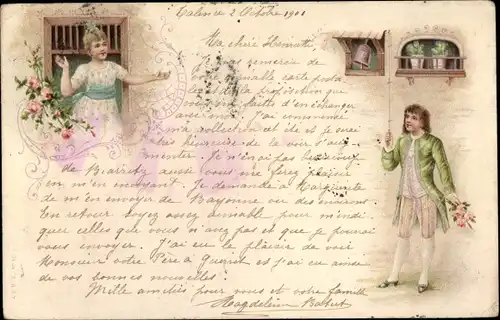 Talence 2 Octobre 1901
Ma chère Henriette,
Je vous remercie de
votre aimable carte posta
le et de la proposition que
vous me faites d'en échanger
avec moi. J'ai commencé
ma collection cet été et je serai
très heureuse de la voir s'aug
menter. Je n'en ai pas beaucoup
de Biarritz aussi vous me ferez plaisir
en m'en envoyant. Je demande à Marguerite
de m'en envoyer de Bayonne ou des environs.
En retour soyez assez aimable pour m'indi
quer celles que vous n'avez pas et que je pourrai
vous envoyer. J'ai eu le plaisir de voir
Monsieur votre Père à Guéret et j'ai eu ainsi
de vos bonnes nouvelles.
Mille amitiés pour vous et votre famille
Magdeleine